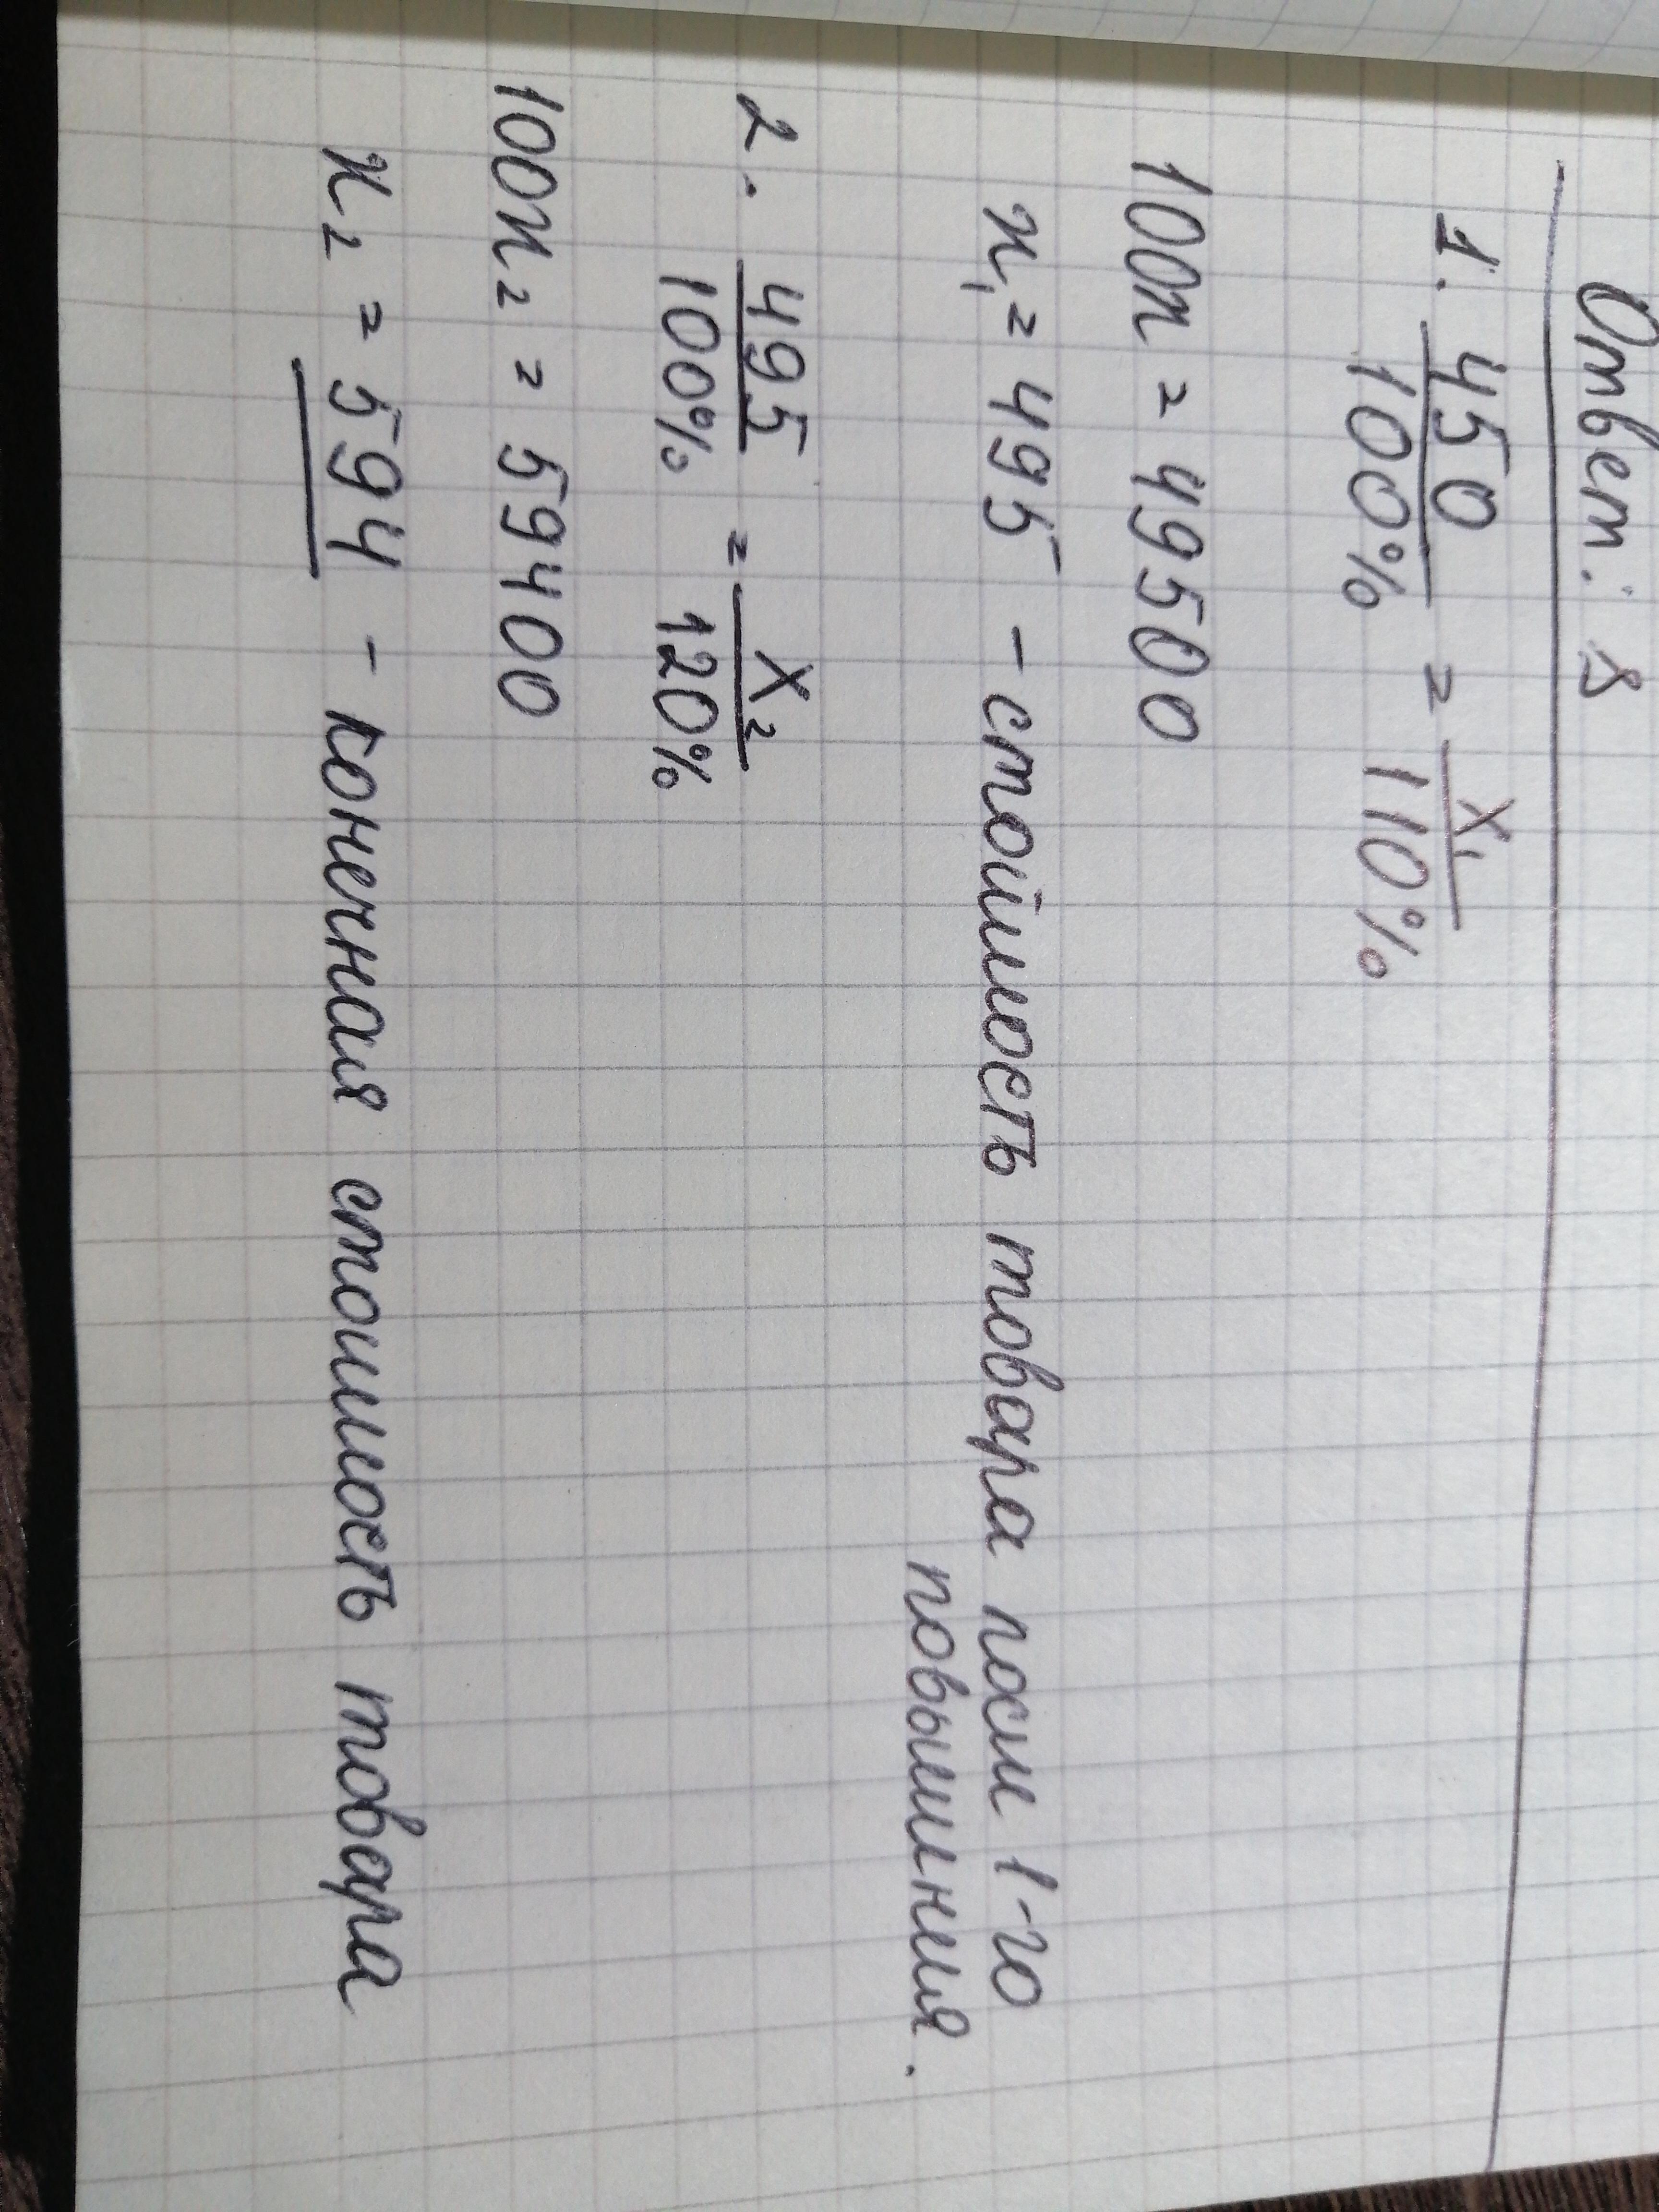 Ответ: 8
1. 450/100% = x₁/110%
100x = 49500
x₁ = 495 - стоймость товара посли 1-го
повышиния.
2. 495/100% = x₂/120%
100x₂ = 59400
x₂ = 594 - конечная стоимость товара